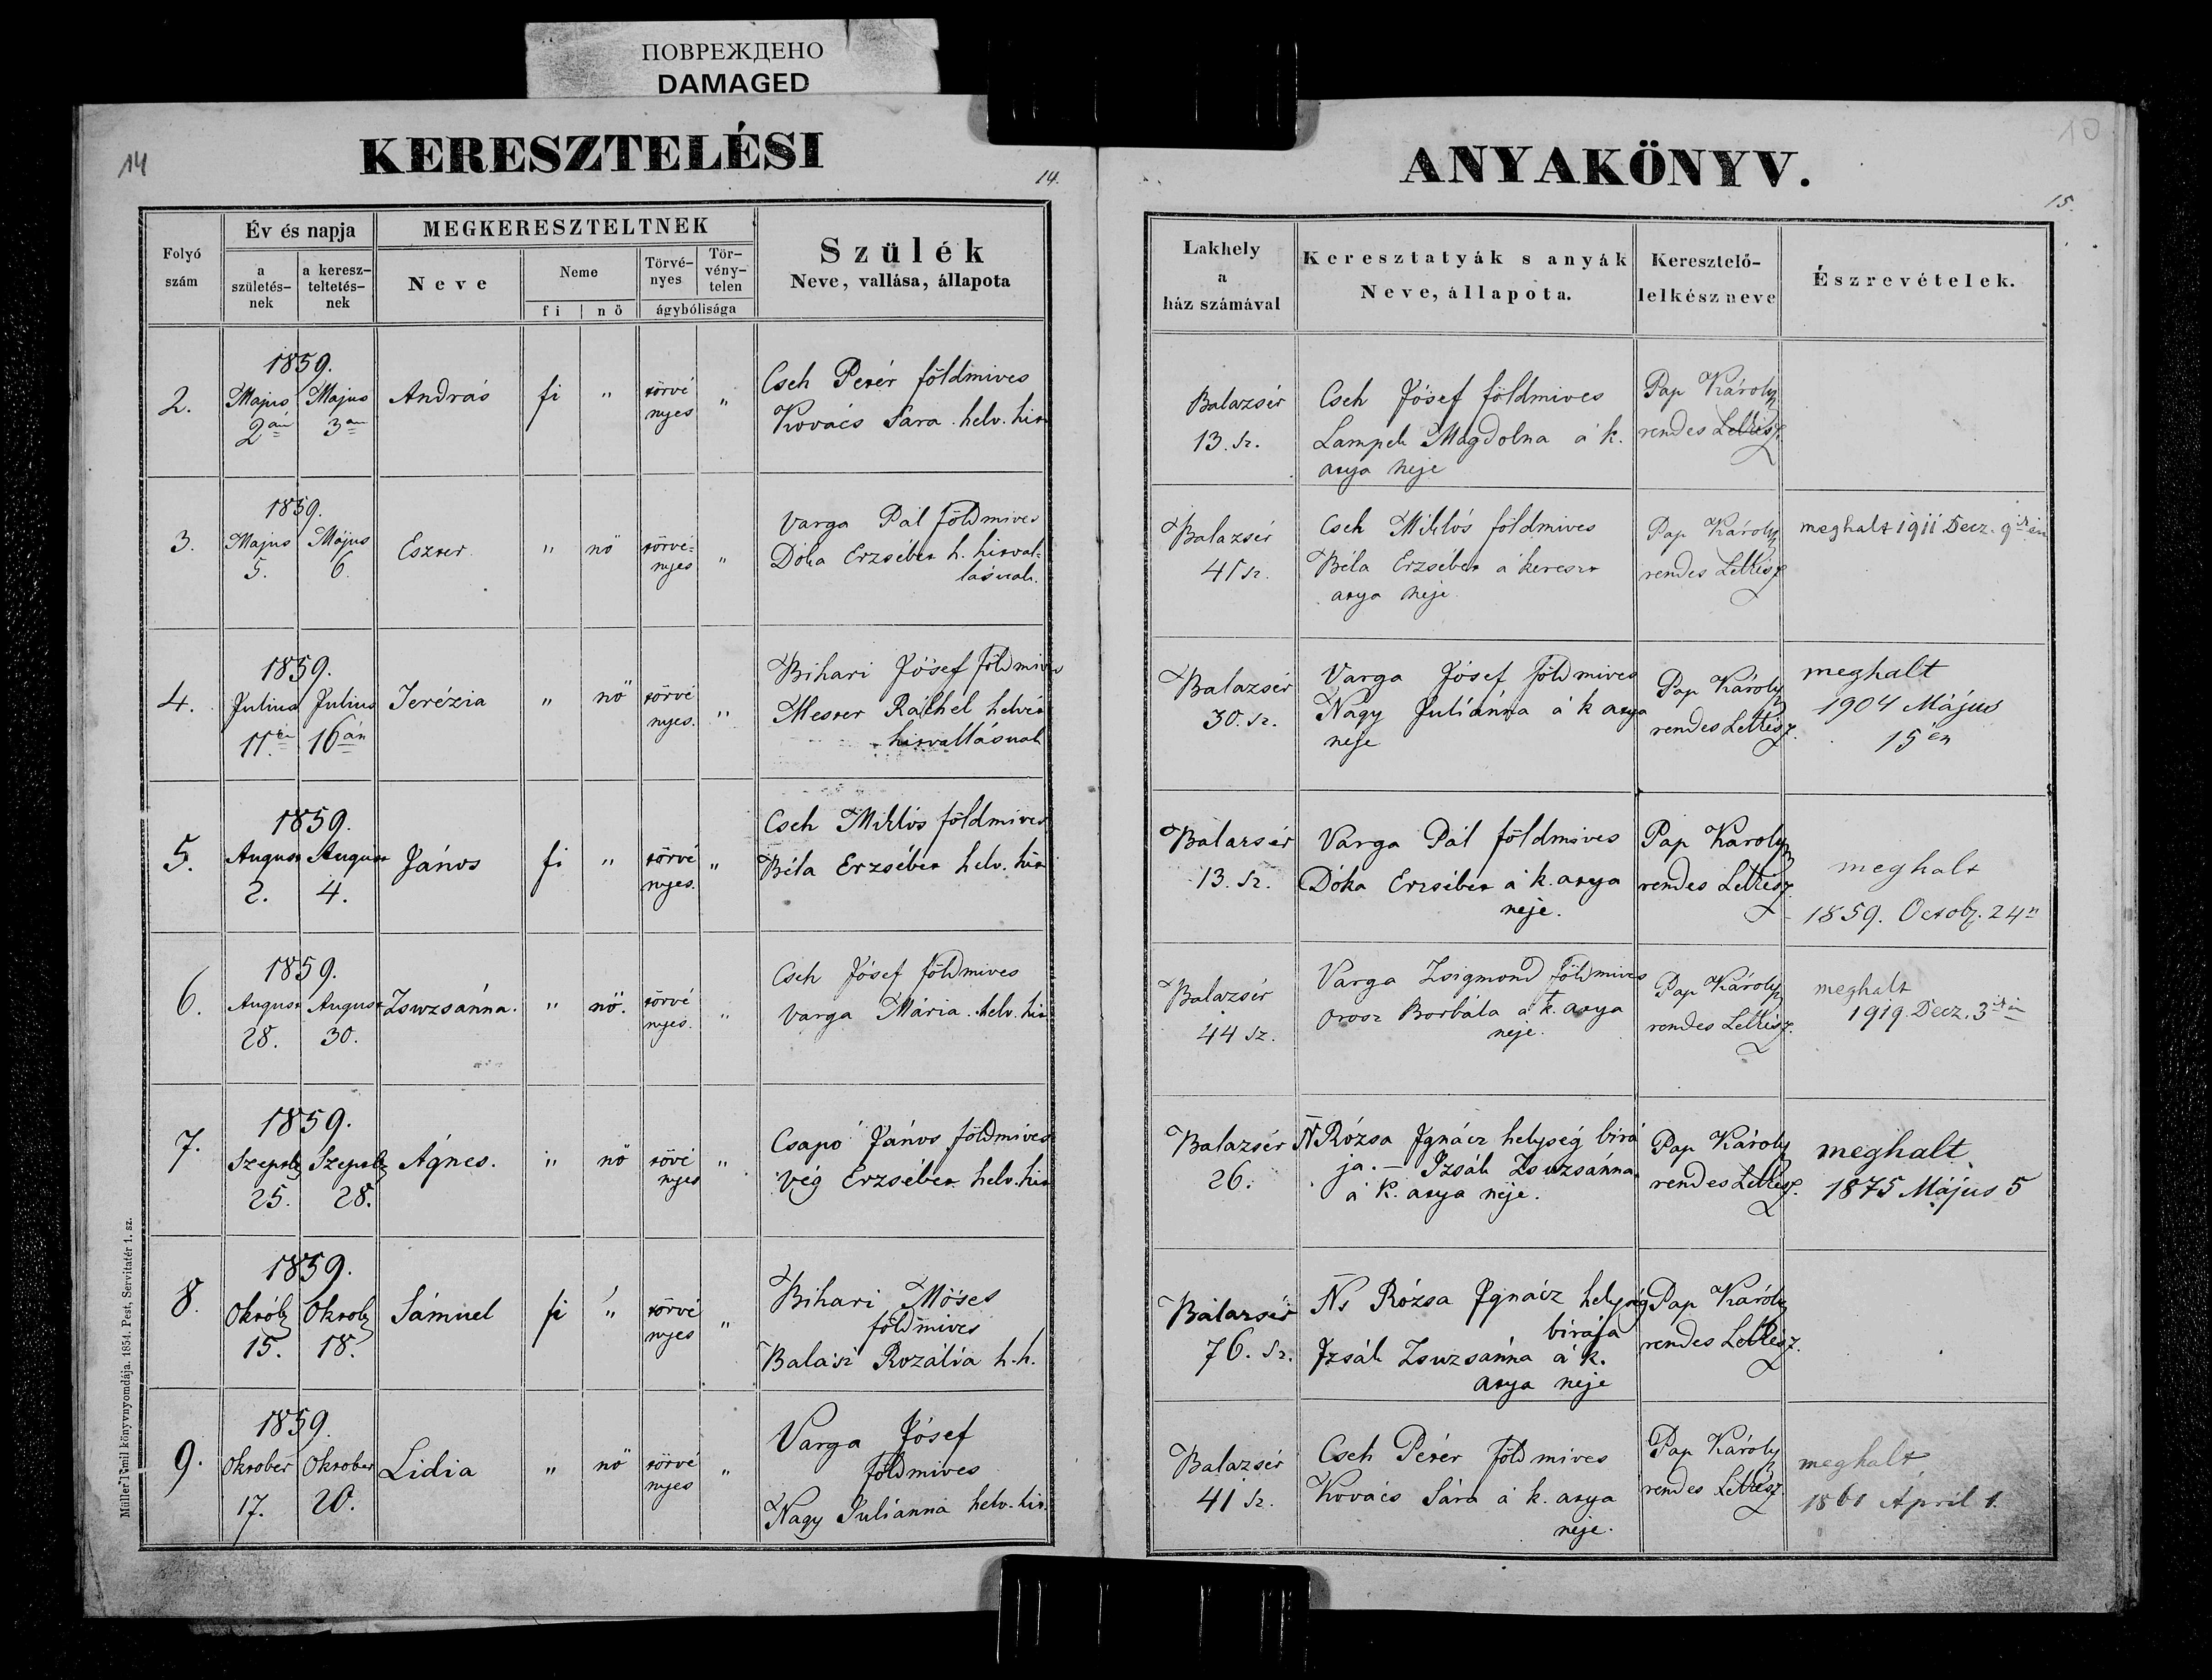 ПОВРЕЖДЕНО
DAMAGED
14
KERESZTELÉSI
14.
Folyó szám
Év és napja
a születés-nek
a keresz-teltetés-nek
MEGKERESZTELTNEK
Neve
Neme
fi | nö
Törvé-nyes
Tör-vény-telen
ágybólisága
Szülék
Neve, vallása, állapota
2.
1859.
Majus 2án
Majus 3an
András
fi
"
törvé
nyes
"
Cseh Péter földmives
Kovács Sara. helv. hit
3.
1859.
Majus 5.
Május 6.
Eszter
"
nö
törvé-
nyes
"
Varga Pál földmives
Dóka Erzsébet h. hitval-
lásuak.
4.
1859.
Julius 11én
Julius 16án
Terézia
"
nö
törvé
nyes.
"
Bihari Jósef földmives
Mester Ráchel helvét
hitvallásuak
5.
1859.
August 2.
August 4.
János
fi
"
törvé
nyes.
"
Cseh Miklós földmives
Béla Erzsébet helv. hit
6.
1859.
August 28.
August 30.
Zsuzsánna.
"
nö.
törvé
nyes.
"
Cseh Jósef földmives
Varga Mária. helv. hit
7.
1859.
Szeptb 25.
Szeptb 28.
Ágnes.
"
nö
tövé
nyes
"
Csapó János földmives
Vég Erzsébet helv. hit
8.
1859.
Októb 15.
Oktob 18.
Sámuel
fi
"
törvé
nyes
"
Bihari Móses
földmives
Balási Rozália h.h.
9.
1859.
Oktober 17.
Oktober 20.
Lidia
"
nö
törvé
nyes
"
Varga Jósef
földmives
Nagy Juliánna helv. hit.
Müller Emil könyvnyomdája. 1854. Pest, Servitatér 1. sz.
10
ANYAKÖNYV.
15.
Lakhely
a
ház számával
Keresztatyák s anyák
Neve, állapota.
Keresztelő-
lelkész neve
Észrevételek.
Balazsér
13. sz.
Cseh Jósef földmives
Lampek Magdolna a k.
atya neje
Pap Károly
rendes Lelkész.
Balazsér
41 sz.
Cseh Miklós földmives
Béla Erzsébet a kereszt
atya neje.
Pap Károly
rendes Lelkész
meghalt 1911 Decz. 9 én
Balazsér
30. sz.
Varga Jósef földmives
Nagy Juliánna a k atya
neje
Pap Károly
rendes Lelkész.
meghalt
1904 Május
15én
Balazsér
13. sz.
Varga Pál földmives
Dóka Erzsébet a k. atya
neje.
Pap Karoly
rendes Lelkész.
meghalt
1859. Octob. 24n
Balazsér
44 sz.
Varga Zsigmond földmives
Orosz Borbála a k. atya
neje.
Pap Károly
rendes Lelkész.
meghalt
1919. Decz. 3
Balazsér
26.
N Rózsa Ignácz helység birá
ja. – Izsák Zsuzsánna
a k. atya neje.
Pap Károly
rendes Lelkész.
meghalt
1875 Május 5
Balazsér
76. sz.
Ns Rózsa Ignácz helység
birája
Izsák Zsuzsánna a k.
atya neje
Pap Károly
rendes Lelkész.
Balazsér
41 sz.
Cseh Péter földmives
Kovács Sára a k. atya
neje.
Pap Károly
rendes Lelkész.
meghalt
1861 Ápril 1.